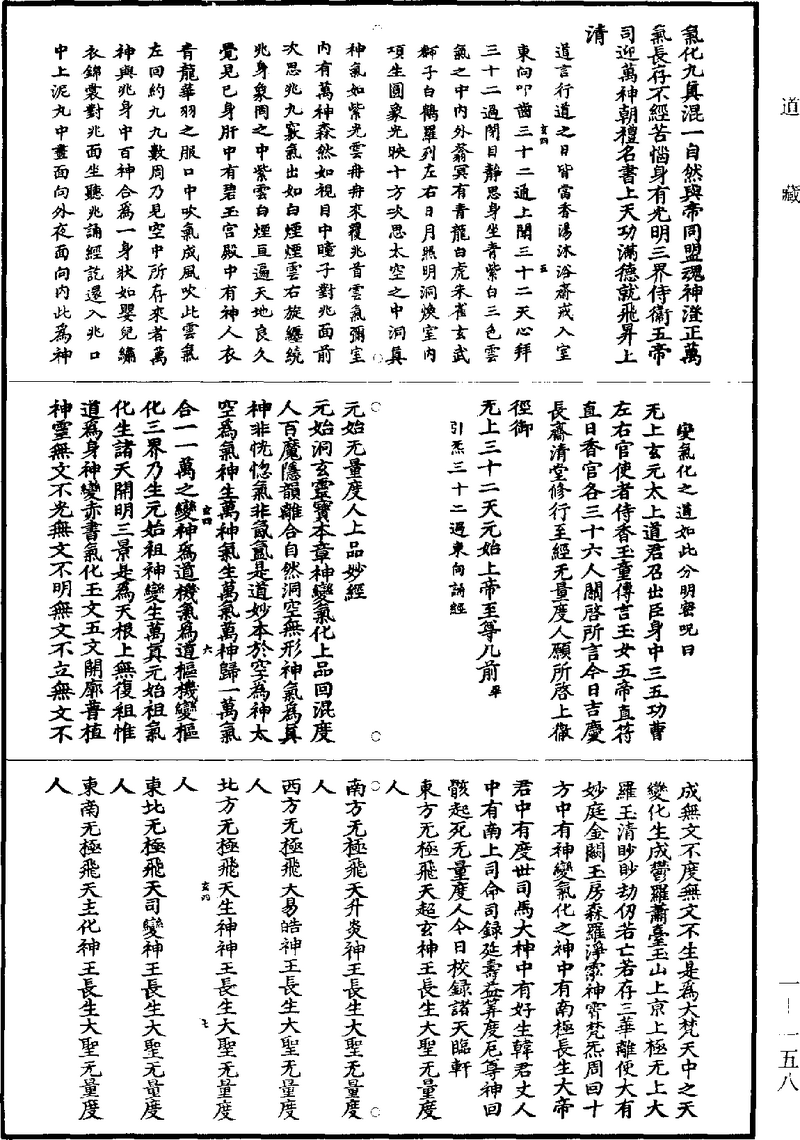 道藏
氣化九真混一自然與帝同盟魂神澄正萬
氣長存不經苦惱身有光明三界侍衞五帝
司迎萬神朝禮名書上天功滿德就飛昇上
清
道言行道之日皆當香湯沐浴齋戒入室
東向叩齒三十二通上聞三十二天心拜
三十二過閉目靜思身坐青紫白三色雲
氣之中內外蓊冥有青龍白虎朱雀玄武
獅子白鶴羅列左右日月照明洞煥室內
項生圓象光映十方次思太空之中洞真
神氣如紫光雲冉冉來覆兆首雲氣彌室
內有萬神森然如視目中瞳子對兆面前
次思兆九竅氣出如白煙煙雲右旋纏繞
兆身象罔之中紫雲白煙亘遍天地良久
覺見已身肝中有碧玉宮殿中有神人衣
青龍華羽之服口中吹氣成風吹此雲氣
左回約九九數周乃見空中所存來者萬
神與兆身中百神合為一身狀如嬰兒繡
衣錦裳對兆面坐聽兆誦經訖還入兆口
中上泥丸中晝面向外夜面向內此為神
變氣化之道如此分明密呪曰
无上玄元太上道君召出臣身中三五功曹
左右官使者侍香玉童傳言玉女五帝直符
直日香官各三十六人關啓所言今日吉慶
長齋清堂修行至經无量度人願所啓上徹
徑御
无上三十二天元始上帝至尊几前畢
引炁三十二過東向誦經
元始无量度人上品妙經
元始洞玄靈寶本章神變氣化上品回混度
人百魔隱韻離合自然洞空無形神氣為真
神非恍惚氣非氤氳是道妙本於空為神太
空為氣神生萬神氣生萬氣萬神歸一萬氣
合一一萬之變神為道機氣為道樞機變樞
化三界乃生元始祖神變生萬真元始祖氣
化生諸天開明三景是為天根上無復祖惟
道為身神變赤書氣化玉文五文開廓普植
神靈無文不光無文不明無文不立無文不
成無文不度無文不生是為大梵天中之天
變化生成鬱羅蕭臺玉山上京上極无上大
羅玉清眇眇劫仞若亡若存三華離便大有
妙庭金闕玉房森羅淨霐神霄梵炁周回十
方中有神變氣化之神中有南極長生大帝
君中有度世司馬大神中有好生韓君丈人
中有南上司命司錄延壽益算度厄尊神回
骸起死无量度人今日校錄諸天臨軒
東方无極飛天超玄神王長生大聖无量度
人
南方无極飛天升炎神王長生大聖无量度
人
西方无極飛天易皓神王長生大聖无量度
人
北方无極飛天生神神王長生大聖无量度
人
東北无極飛天司變神王長生大聖无量度
人
東南无極飛天主化神王長生大聖无量度
人
玄四
五
玄四
六
玄四
七
一－一五八